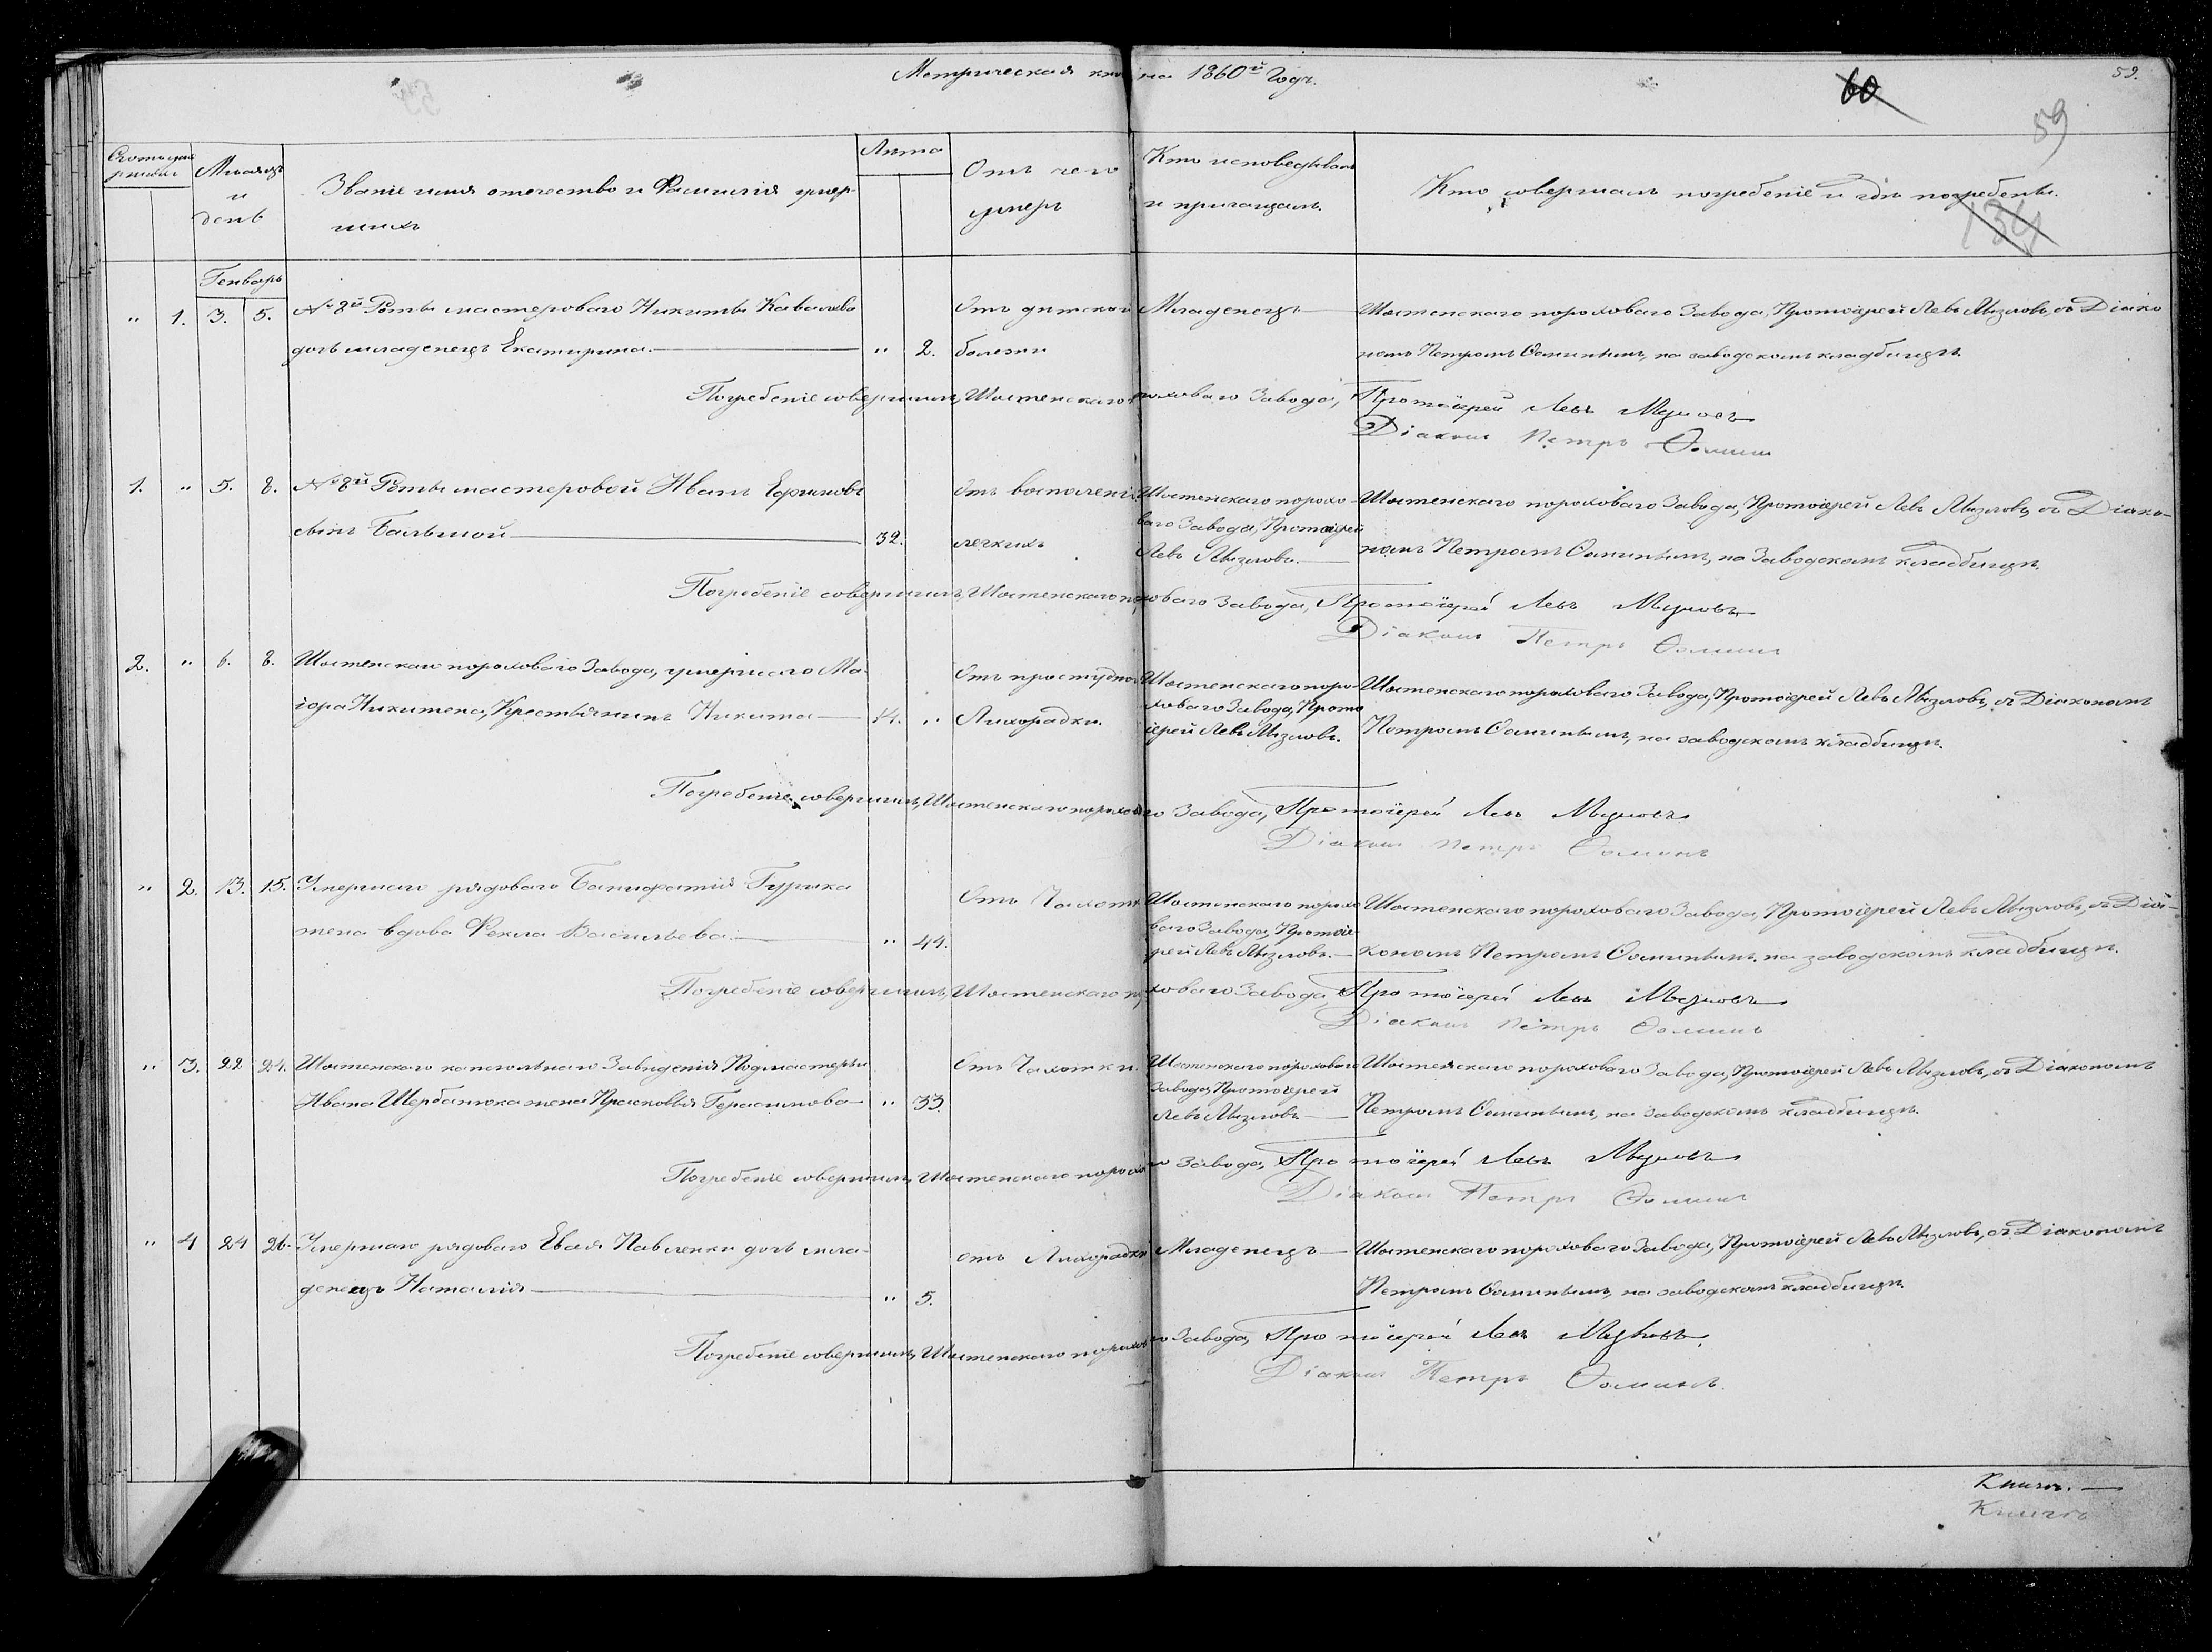 Метрическая книга 1860й Годъ.
60
59.
59
134
Счетъ умершихъ
Мѣсяцъ и день
Званіе имя отечество и Фамилія умер-
шихъ
Лѣта
Отъ чего
умеръ
Кто исповедывалъ
и причащалъ.
Кто совершалъ погребеніе и гдѣ погребены.
Генварь
" 1. 3. 5. № 8й Роты мастероваго Никиты Кавалева Отъ дѣтской Младенецъ Шостенскаго пороховаго Завода, Протоіерей Левъ Мизловъ, съ Діако
дочь младенецъ Екатирина. " 2. болезни номъ Петромъ Ѳоминымъ, на заводскомъ кладбищѣ.
Погребеніе совершилъ, Шостенскаго пороховаго Завода, Протоіерей Левъ Мизловъ
Діаконъ Петръ Ѳоминъ
1. " 5. 8. № 8й Роты мастеровой Иванъ Ефимовъ Отъ воспаленія Шостенскаго порохо- Шостенскаго пороховаго Завода, Протоіерей Левъ Мизловъ, съ Діако-
сынъ Бальшой 32. легкихъ ваго Завода, Протоіерей Левъ Мизловъ. номъ Петромъ Ѳоминымъ, на Заводскомъ кладбищѣ.
Погребеніе совершилъ, Шостенскаго пороховаго Завода, Протоіерей Левъ Мизловъ
Діаконъ Петръ Ѳоминъ
2. " 6. 8. Шостенскаго пороховаго Завода, умершаго Ма- Отъ простудной Шостенскаго поро- Шостенскаго пороховаго Завода, Протоіерей Левъ Мизловъ, съ Діакономъ
іора Никитена, Крестьянинъ Никита 14. " Лихорадки. ховаго Завода, Прото іерей Левъ Мизловъ. Петромъ Ѳоминымъ, на заводскомъ кладбищѣ.
Погребеніе совершилъ, Шостенскаго пороховаго Завода, Протоіерей Левъ Мизловъ
Діаконъ Петръ Ѳоминъ
" 2. 13. 15. Умершаго рядоваго Банифатія Гурика Отъ Чахотки Шостенскаго порохо Шостенскаго пороховаго Завода, Протоіерей Левъ Мизловъ, съ Діа-
жена вдова Фекла Васильева " 44. ваго Завода, Протоіе- рей Левъ Мизловъ. кономъ Петромъ Ѳоминымъ, на заводскомъ кладбищѣ.
Погребеніе совершилъ, Шостенскаго пороховаго Завода, Протоіерей Левъ Мизловъ
Діаконъ Петръ Ѳоминъ
" 3. 22 24. Шостенскаго капсюльнаго Заведенія Подмастерья Отъ Чахотки. Шостенскаго пороховаго Шостенскаго пороховаго Завода, Протоіерей Левъ Мизловъ, съ Діакономъ
Ивана Щербанюка жена Прасковья Герасимова " 33. Завода, Протоіерей Левъ Мизловъ Петромъ Ѳоминымъ, на заводскомъ кладбищѣ.
Погребеніе совершилъ, Шостенскаго пороховаго Завода, Протоіерей Левъ Мизловъ
Діаконъ Петръ Ѳоминъ
" 4 24 26. Умершаго рядоваго Павленки дочь мла- отъ Лихорадки Младенецъ Шостенскаго пороховаго Завода, Протоіерей Левъ Мизловъ, съ Діакономъ
денецъ Наталія " 5. Петромъ Ѳоминымъ, на заводскомъ кладбищѣ.
Погребеніе совершилъ, Шостенскаго пороховаго Завода, Протоіерей Левъ Мизловъ
Діаконъ Петръ Ѳоминъ.